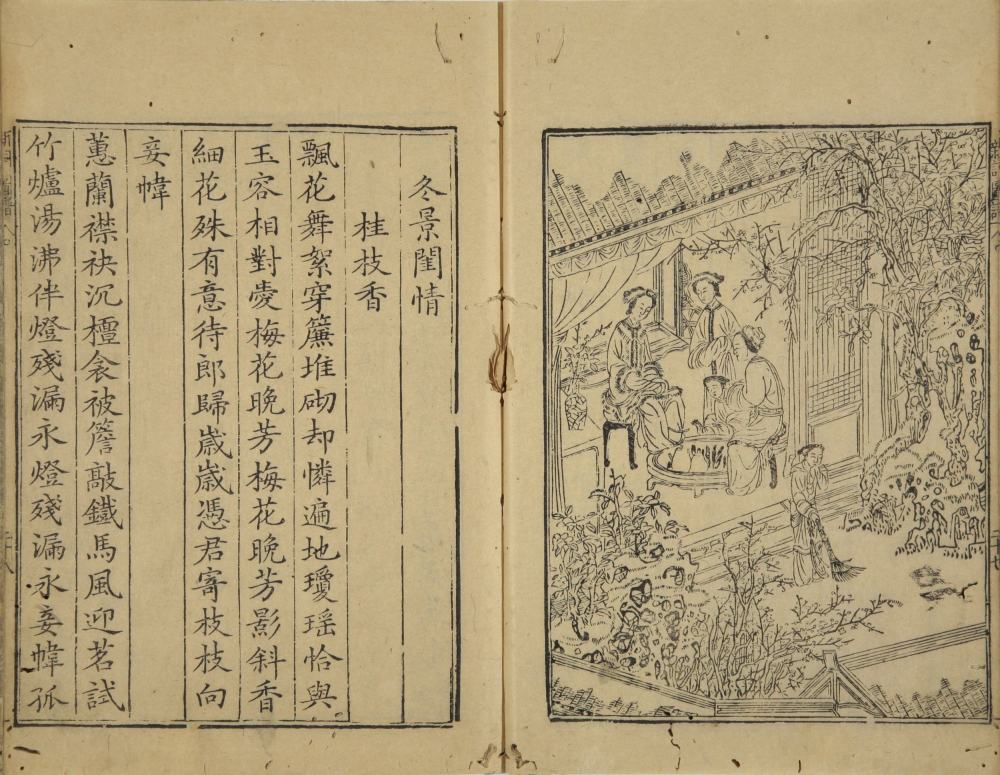 冬景閨情
桂枝香
飄花舞絮穿簾堆砌却憐遍地瓊瑤恰與
玉容相對愛梅花晚芳梅花晚芳影斜香
細花殊有意待郎歸歲歲憑君寄枝枝向
妾幃
蕙蘭襟袂沉檀衾被簷敲鐵馬風迎茗試
竹爐湯沸伴燈殘漏永燈殘漏永妾幃孤